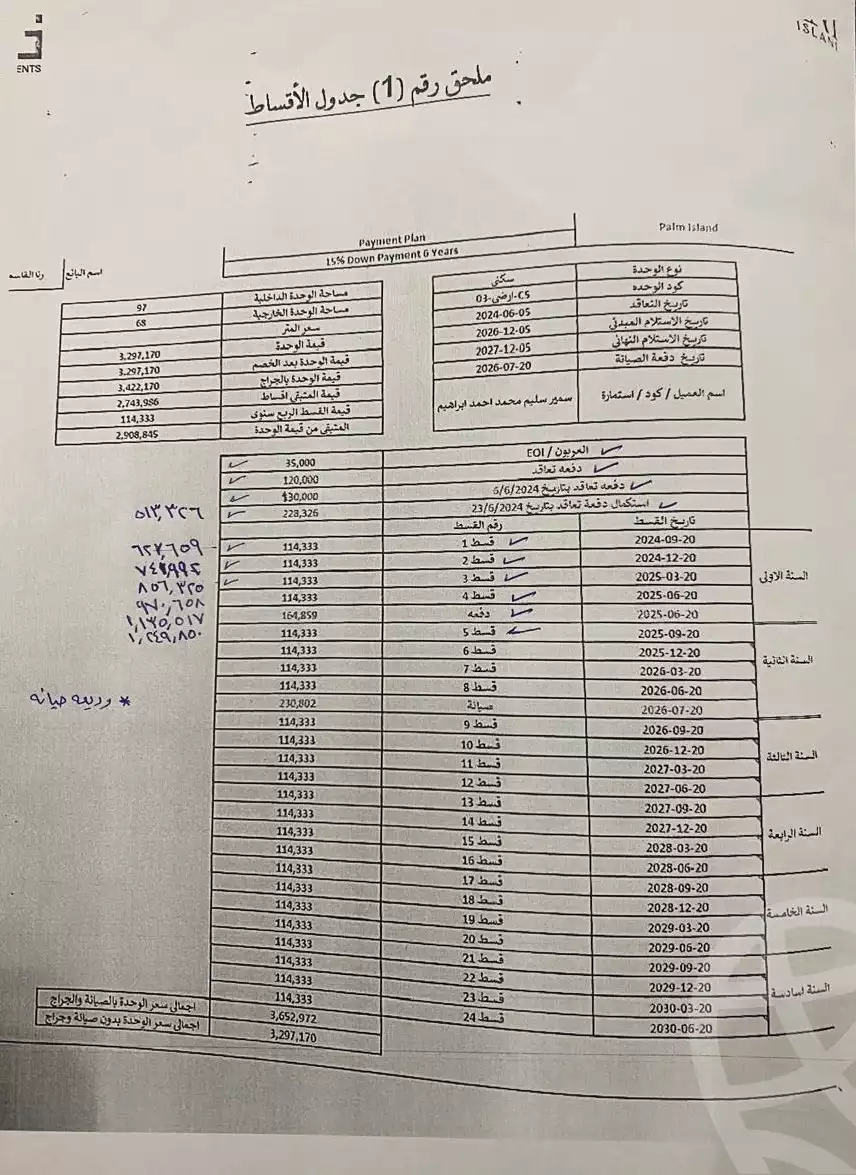 ENTS
ISLAN
ملحق رقم (1) جدول الأقساط
Palm Island
Payment Plan
15% Down Payment 6 Years
اسم البائع
رنا القاسم
نوع الوحدة سكني
كود الوحده C5-ارضى-03
تاريخ التعاقد 2024-06-05
تاريخ الاستلام المبدئي 2026-12-05
تاريخ الاستلام النهائي 2027-12-05
تاريخ دفعة الصيانة 2026-07-20
اسم العميل / كود / استمارة سمير سليم محمد احمد ابراهيم
مساحة الوحدة الداخلية 97
مساحة الوحدة الخارجية 68
سعر المتر
قيمة الوحدة 3,297,170
قيمة الوحدة بعد الخصم 3,297,170
قيمة الوحدة بالجراج 3,422,170
قيمة المتبقى اقساط 2,743,986
قيمة القسط الربع سنوى 114,333
المتبقى من قيمة الوحدة 2,908,845
العربون / EOI 35,000
دفعه تعاقد 120,000
دفعه تعاقد بتاريخ 6/6/2024 130,000
استكمال دفعة تعاقد بتاريخ 23/6/2024 228,326
٥١٣,٣٢٦
تاريخ القسط رقم القسط
السنة الاولى
2024-09-20 قسط 1 114,333 ٦٢٧,٦٥٩
2024-12-20 قسط 2 114,333 ٧٤١,٩٩٢
2025-03-20 قسط 3 114,333 ٨٥٦,٣٢٥
2025-06-20 قسط 4 114,333 ٩٧٠,٦٥٨
2025-06-20 دفعه 164,859 ١,١٣٥,٥١٧
السنة الثانية
2025-09-20 قسط 5 114,333 ١,٢٤٩,٨٥٠
2025-12-20 قسط 6 114,333
2026-03-20 قسط 7 114,333
2026-06-20 قسط 8 114,333
2026-07-20 صيانة 230,802
* وديعه صيانه
السنة الثالثة
2026-09-20 قسط 9 114,333
2026-12-20 قسط 10 114,333
2027-03-20 قسط 11 114,333
2027-06-20 قسط 12 114,333
السنة الرابعة
2027-09-20 قسط 13 114,333
2027-12-20 قسط 14 114,333
2028-03-20 قسط 15 114,333
2028-06-20 قسط 16 114,333
السنة الخامسة
2028-09-20 قسط 17 114,333
2028-12-20 قسط 18 114,333
2029-03-20 قسط 19 114,333
2029-06-20 قسط 20 114,333
السنة اسادسة
2029-09-20 قسط 21 114,333
2029-12-20 قسط 22 114,333
2030-03-20 قسط 23 114,333
2030-06-20 قسط 24 114,333
اجمالى سعر الوحدة بالصيانة والجراج 3,652,972
اجمالى سعر الوحدة بدون صيانة وجراج 3,297,170